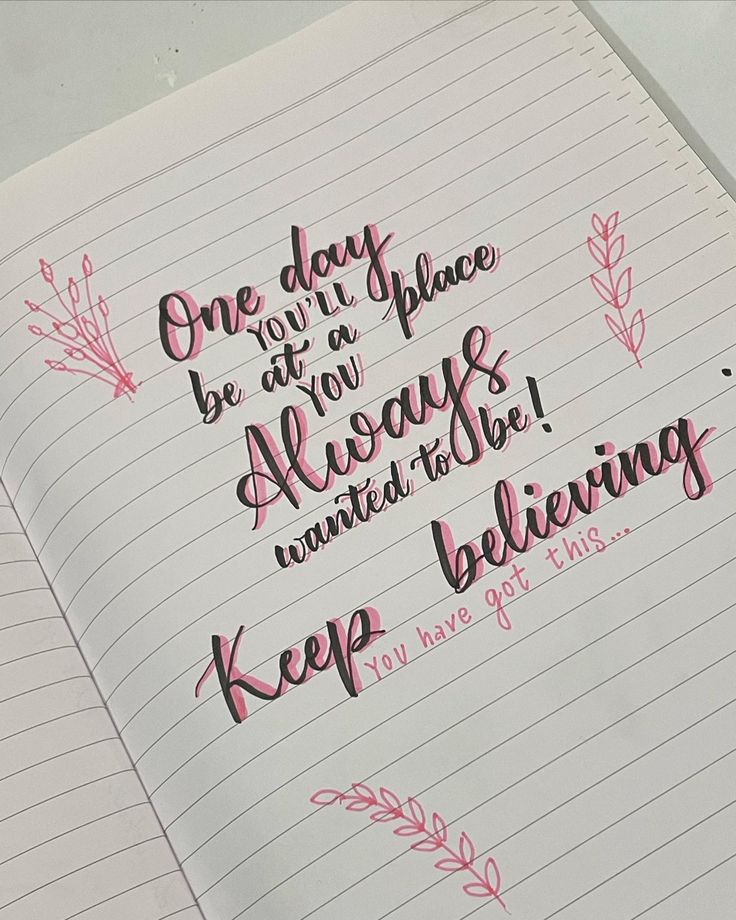 One day
YOU'LL
be at a place
YOU
Always
wanted to be!
Keep believing
YOU have got this...